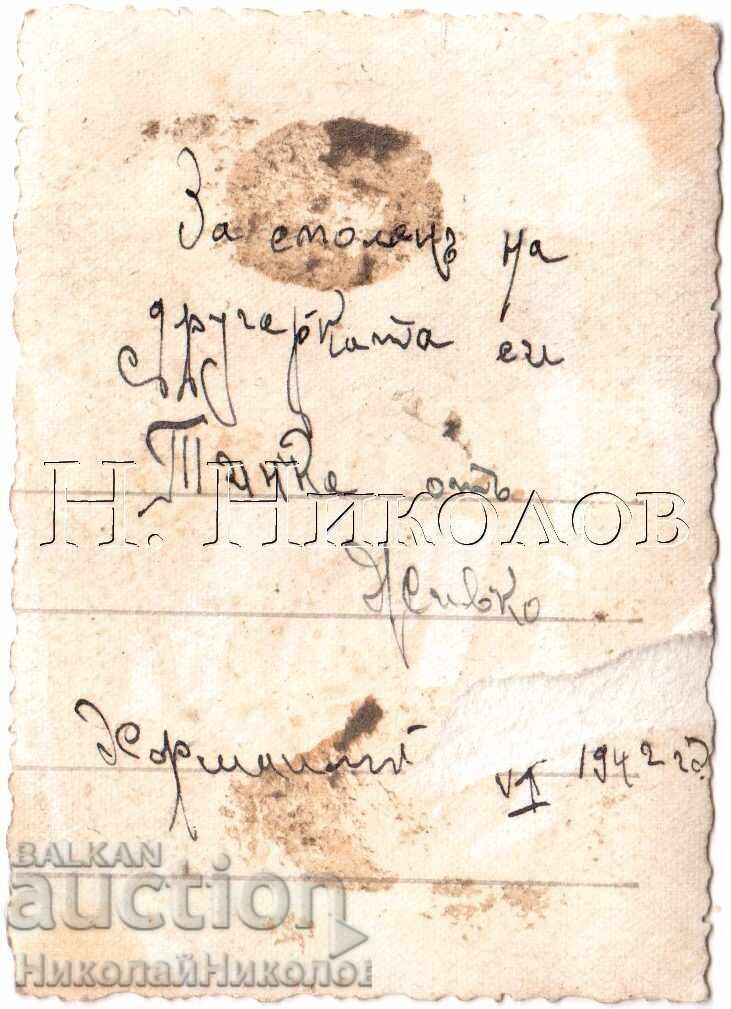 За споменъ на
другарката си
Танка отъ
Н. Николов
Живко
VI 1942 г.
BALKAN
auction
НиколайНиколов